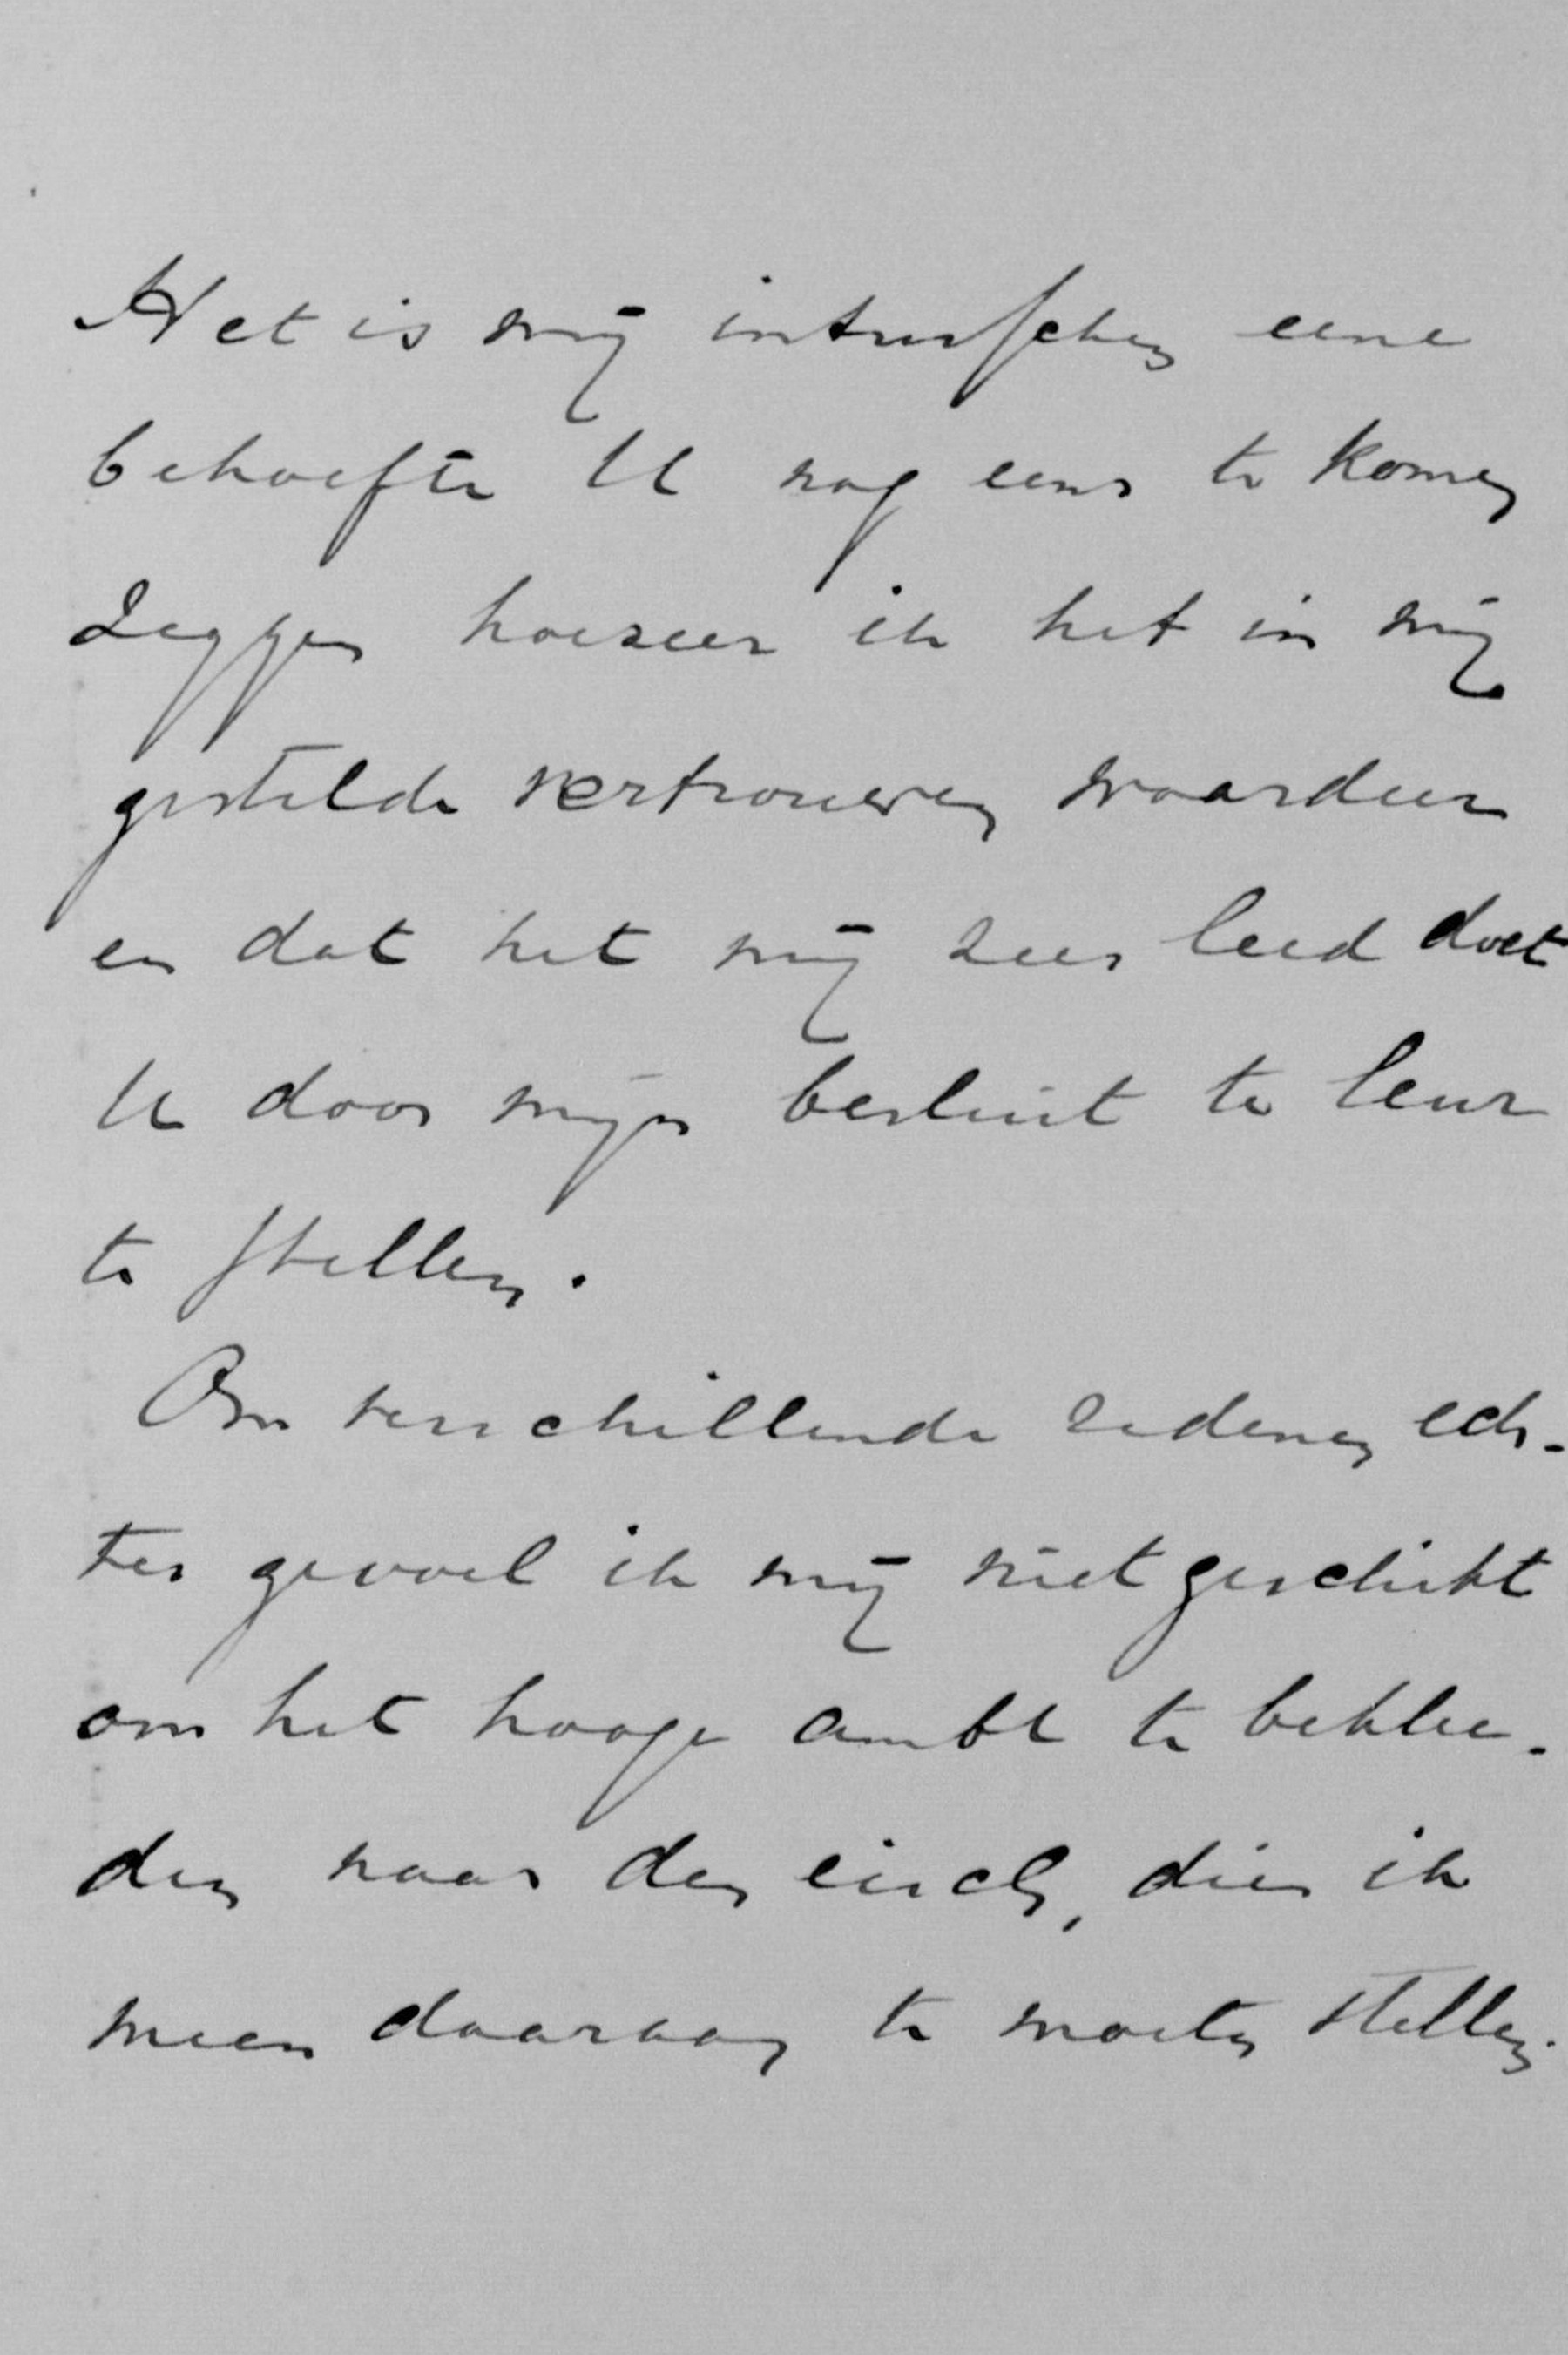 Het is mij intusschen eene
behoefte U nog eens te komen
zeggen hoezeer ik het in mij
gestelde vertrouwen waardeer
en dat het mij zeer leed doet
U door mijn besluit te leur
te stellen.
Om verschillende redenen ech-
ter gevoel ik mij niet geschikt
om het hooge ambt te beklee-
den naar den eisch, dien ik
meen daaraan te moeten stellen.